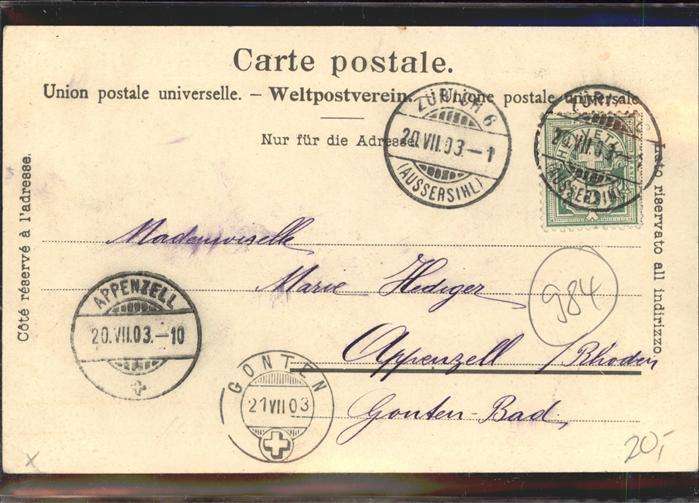 Carte postale.
Union postale universelle. – Weltpostverein. – Unione postale universale
Nur für die Adresse.
Côté réservé à l'adresse.
Lato riservato all indirizzo.
ZÜRICH 6
20.VII.03.–1
(AUSSERSIHL)
ZÜRI
VII.03.–
(AUSSERSIHL)
HELVETIA
Mademoiselle
Marie Hediger
Appenzell /Rhoden
Gonten-Bad,
APPENZELL
20.VII.03.–10
GONTEN
21 VII 03
984
20,-
x